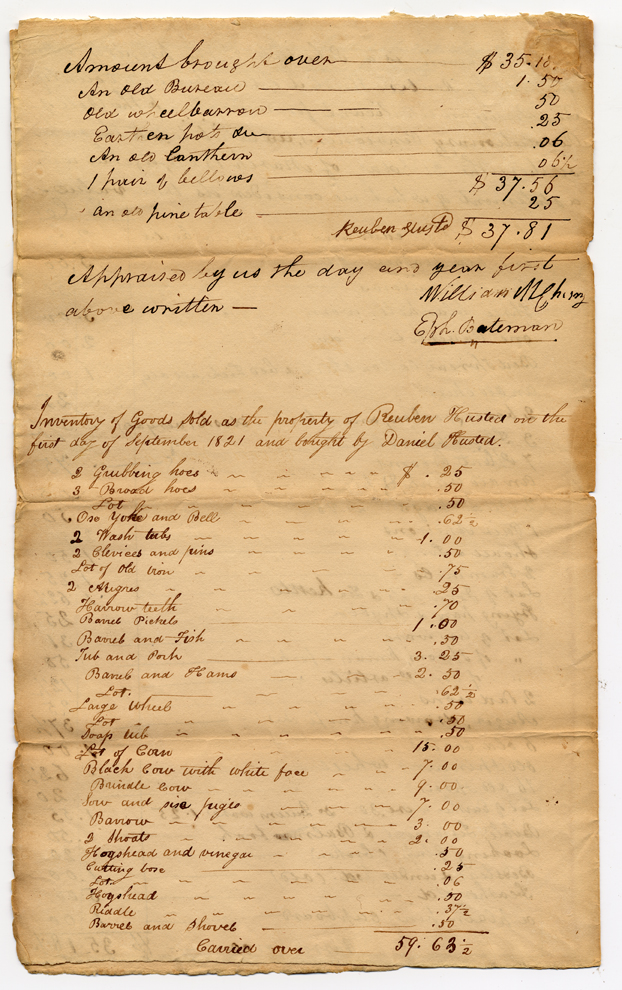 Amount brought over $ 35.18
An old Bureau 1.50
Old wheelbarrow 50
Earthen pots &c .25
An old Lanthern .06
1 pair of bellows 06½
$ 37.56
an old pine table 25
Reuben Husted $ 37.81
Appraised by us the day and year first
above written —
William McChesny
Eph. Bateman
Inventory of Goods sold as the property of Reuben Husted on the
first day of September 1821 and bought by Daniel Husted.
2 Grubbing hoes $ .25
3 Broad hoes .50
Lot .50
Oxe Yoke and Bell .62½
2 Wash tubs 1.00
2 Clevices and pins .50
Lot of Old iron .75
2 Augres .25
Harrow teeth .70
Barrel Pickels 1.00
Barrel and Fish .50
Tub and Pork 3.25
Barrel and Hams 2.50
Lot .62½
Large wheel .50
Lot .50
Soap tub .50
Lot of Corn 15.00
Black Cow with white face 7.00
Brindle Cow 9.00
Sow and six piges 7.00
Barrow 3.00
2 Shoats 2.00
Hogshead and vinegar .50
Cutting boxe .25
Lot .06
Hogshead .50
Riddle .37½
Barrel and Shovel .50
Carried over 59.63½